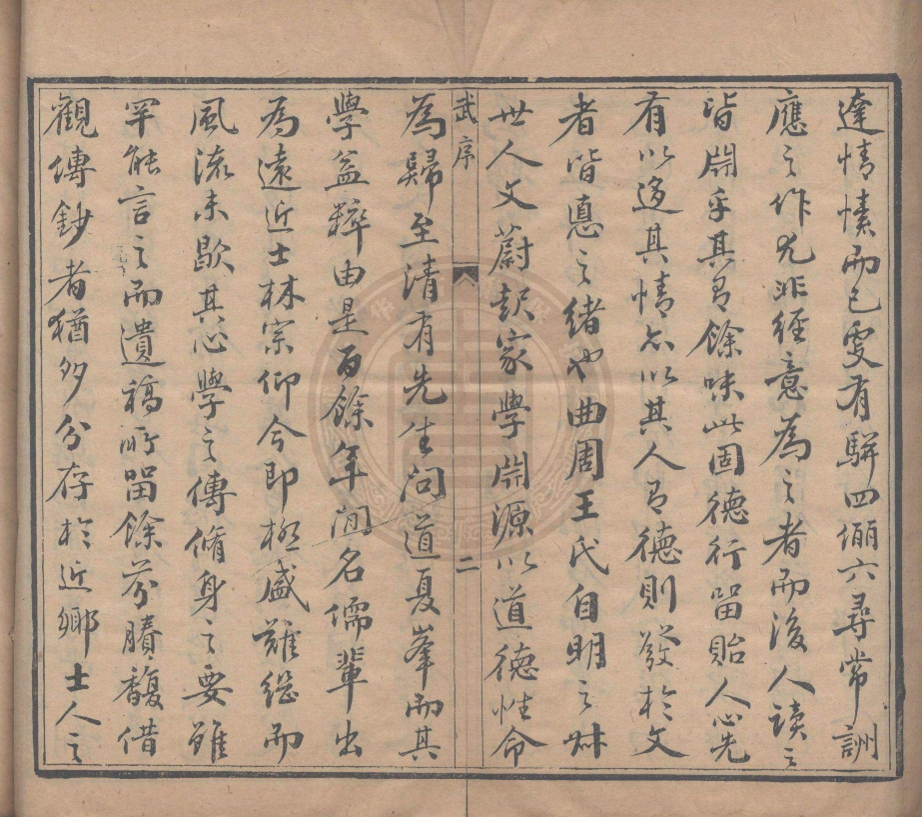 達情愫而已更有駢四儷六尋常詶
應之作尤非經意為之者而後人讀之
皆淵乎其有餘味此固德行留貽人心先
有以適其情亦以其人有德則發於文
者皆悳之緒也曲周王氏自明之叔
世人文蔚起家學淵源以道德性命
武序 二
為歸至清有先生問道夏峯而其
學益粹由是百餘年間名儒輩出
為遠近士林宗仰今即極盛難繼而
風流未歇其心學之傳脩身之要雖
罕能言之而遺稿所留餘芬賸馥借
觀傳鈔者猶多分存於近鄉士人之